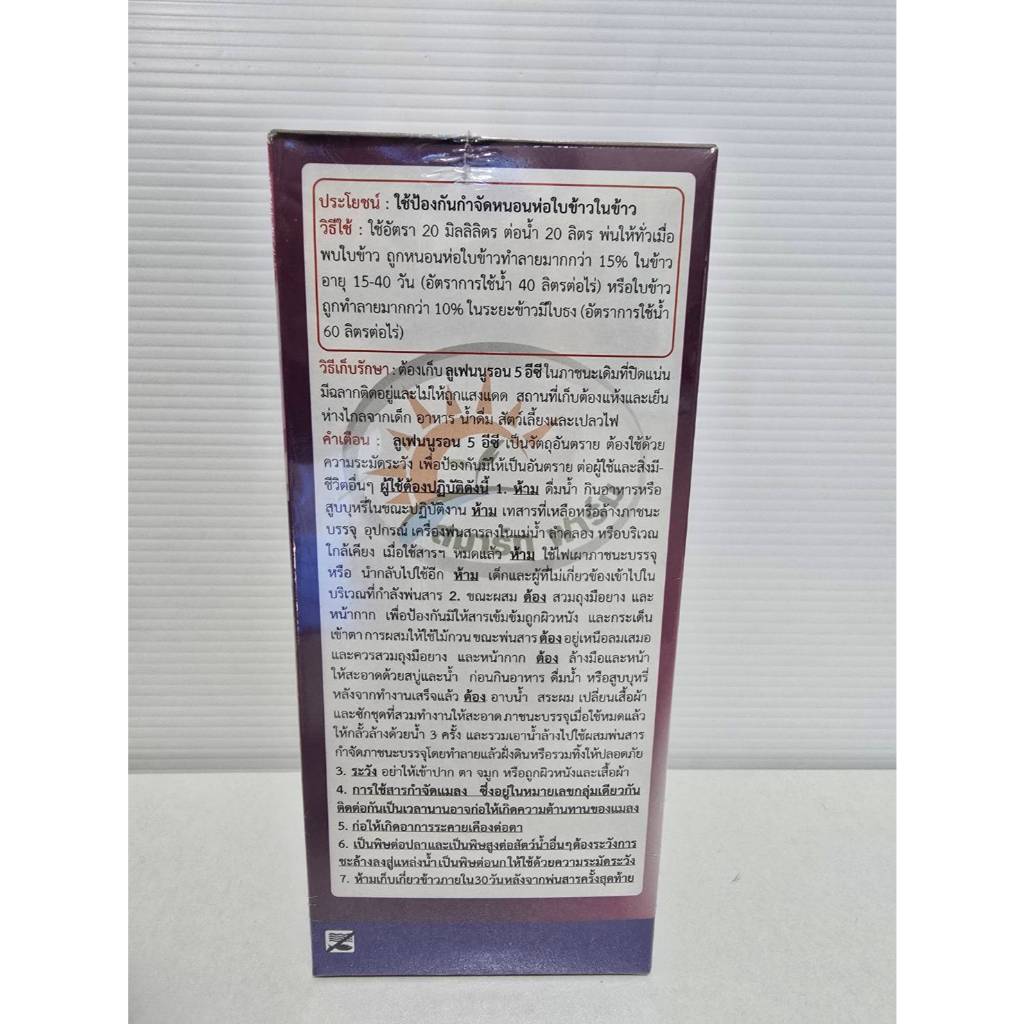 ประโยชน์ : ใช้ป้องกันกำจัดหนอนห่อใบข้าวในข้าว
วิธีใช้ : ใช้อัตรา 20 มิลลิลิตร ต่อน้ำ 20 ลิตร พ่นให้ทั่วเมื่อ
พบใบข้าว ถูกหนอนห่อใบข้าวทำลายมากกว่า 15% ในข้าว
อายุ 15-40 วัน (อัตราการใช้น้ำ 40 ลิตรต่อไร่) หรือใบข้าว
ถูกทำลายมากกว่า 10% ในระยะข้าวมีใบธง (อัตราการใช้น้ำ
60 ลิตรต่อไร่)
วิธีเก็บรักษา : ต้องเก็บ ลูเฟนนูรอน 5 อีซี ในภาชนะเดิมที่ปิดแน่น
มีฉลากติดอยู่และไม่ให้ถูกแสงแดด สถานที่เก็บต้องแห้งและเย็น
ห่างไกลจากเด็ก อาหาร น้ำดื่ม สัตว์เลี้ยงและเปลวไฟ
คำเตือน : ลูเฟนนูรอน 5 อีซี เป็นวัตถุอันตราย ต้องใช้ด้วย
ความระมัดระวัง เพื่อป้องกันมิให้เป็นอันตราย ต่อผู้ใช้และสิ่งมี-
ชีวิตอื่นๆ ผู้ใช้ต้องปฏิบัติดังนี้ 1. ห้าม ดื่มน้ำ กินอาหารหรือ
สูบบุหรี่ในขณะปฏิบัติงาน ห้าม เทสารที่เหลือหรือล้างภาชนะ
บรรจุ อุปกรณ์ เครื่องพ่นสารลงในแม่น้ำ ลำคลอง หรือบริเวณ
ใกล้เคียง เมื่อใช้สารฯ หมดแล้ว ห้าม ใช้ไฟเผาภาชนะบรรจุ
หรือ นำกลับไปใช้อีก ห้าม เด็กและผู้ที่ไม่เกี่ยวข้องเข้าไปใน
บริเวณที่กำลังพ่นสาร 2. ขณะผสม ต้อง สวมถุงมือยาง และ
หน้ากาก เพื่อป้องกันมิให้สารเข้มข้นถูกผิวหนัง และกระเด็น
เข้าตา การผสมให้ใช้ไม้กวน ขณะพ่นสาร ต้อง อยู่เหนือลมเสมอ
และควรสวมถุงมือยาง และหน้ากาก ต้อง ล้างมือและหน้า
ให้สะอาดด้วยสบู่และน้ำ ก่อนกินอาหาร ดื่มน้ำ หรือสูบบุหรี่
หลังจากทำงานเสร็จแล้ว ต้อง อาบน้ำ สระผม เปลี่ยนเสื้อผ้า
และซักชุดที่สวมทำงานให้สะอาด ภาชนะบรรจุเมื่อใช้หมดแล้ว
ให้กลั้วล้างด้วยน้ำ 3 ครั้ง และรวมเอาน้ำล้างไปใช้ผสมพ่นสาร
กำจัดภาชนะบรรจุโดยทำลายแล้วฝังดินหรือรวมทิ้งให้ปลอดภัย
3. ระวัง อย่าให้เข้าปาก ตา จมูก หรือถูกผิวหนังและเสื้อผ้า
4. การใช้สารกำจัดแมลง ซึ่งอยู่ในหมายเลขกลุ่มเดียวกัน
ติดต่อกันเป็นเวลานานอาจก่อให้เกิดความต้านทานของแมลง
5. ก่อให้เกิดอาการระคายเคืองต่อตา
6. เป็นพิษต่อปลาและเป็นพิษสูงต่อสัตว์น้ำอื่นๆต้องระวังการ
ชะล้างลงสู่แหล่งน้ำเป็นพิษต่อนกให้ใช้ด้วยความระมัดระวัง
7. ห้ามเก็บเกี่ยวข้าวภายใน30วันหลังจากพ่นสารครั้งสุดท้าย
สมาร์ท ฟาร์ม